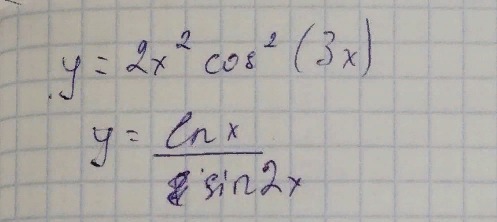 y = 2x² cos² (3x)
y = ln x / sin 2x